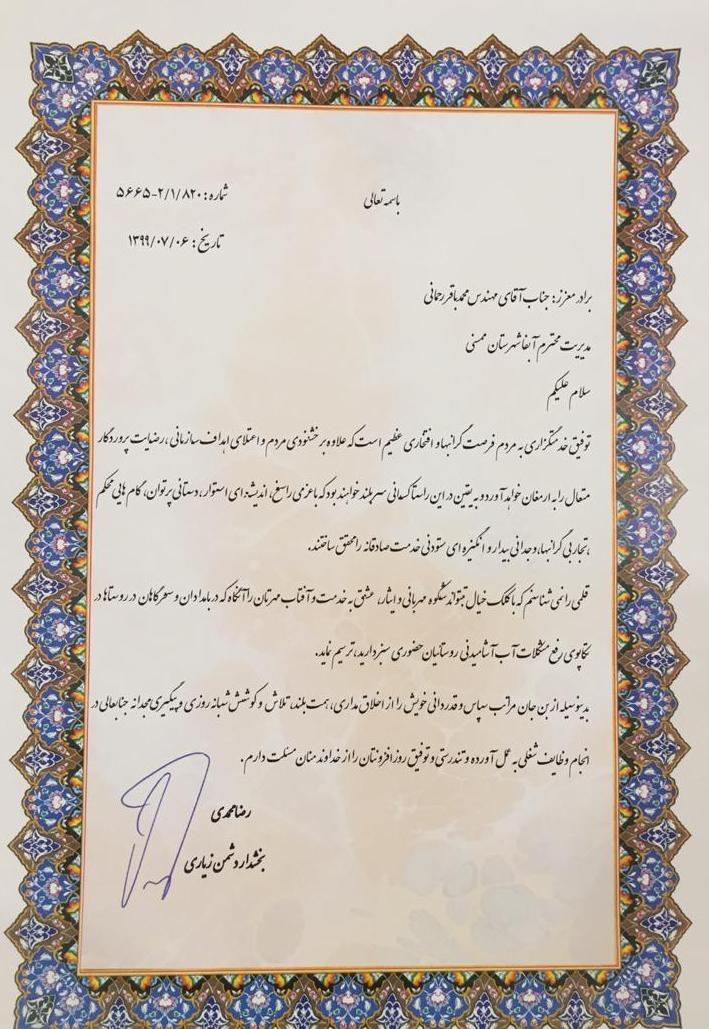 باسمه تعالی
شماره: ۵۶۶۵-۲/۱/۸۲۰
تاریخ: ۱۳۹۹/۰۷/۰۶
برادر معزز: جناب آقای مهندس محمدباقر رحمانی
مدیریت محترم آبفا شهرستان ممسنی
سلام علیکم
توفیق خدمتگزاری به مردم فرصت گرانبها و افتخاری عظیم است که علاوه بر خشنودی مردم و اعتلای اهداف سازمانی، رضایت پروردگار
متعال را به ارمغان خواهد آورد و به یقین در این راستا کسانی سربلند خواهند بود که با عزمی راسخ، اندیشه ای استوار، دستانی پرتوان، گام هایی محکم
،تجاربی گرانبها، وجدانی بیدار و انگیزه ای ستودنی خدمت صادقانه را محقق ساختند.
قلمی را نمی شناسم که با کلک خیال بتواند شکوه مهربانی و ایثار، عشق به خدمت و آفتاب مهرتان را آنگاه که در بامدادان و سحرگاهان در روستاها در
تکاپوی رفع مشکلات آب آشامیدنی روستائیان حضوری سبز دارید، ترسیم نماید.
بدینوسیله از بن جان مراتب سپاس و قدردانی خویش را از اخلاق مداری، همت بلند، تلاش و کوشش شبانه روزی و پیگیری مجدانه جنابعالی در
انجام وظایف شغلی به عمل آورده و تندرستی و توفیق روز افزونتان را از خداوند منان مسئلت دارم.
رضا محمدی
بخشدار دشمن زیاری